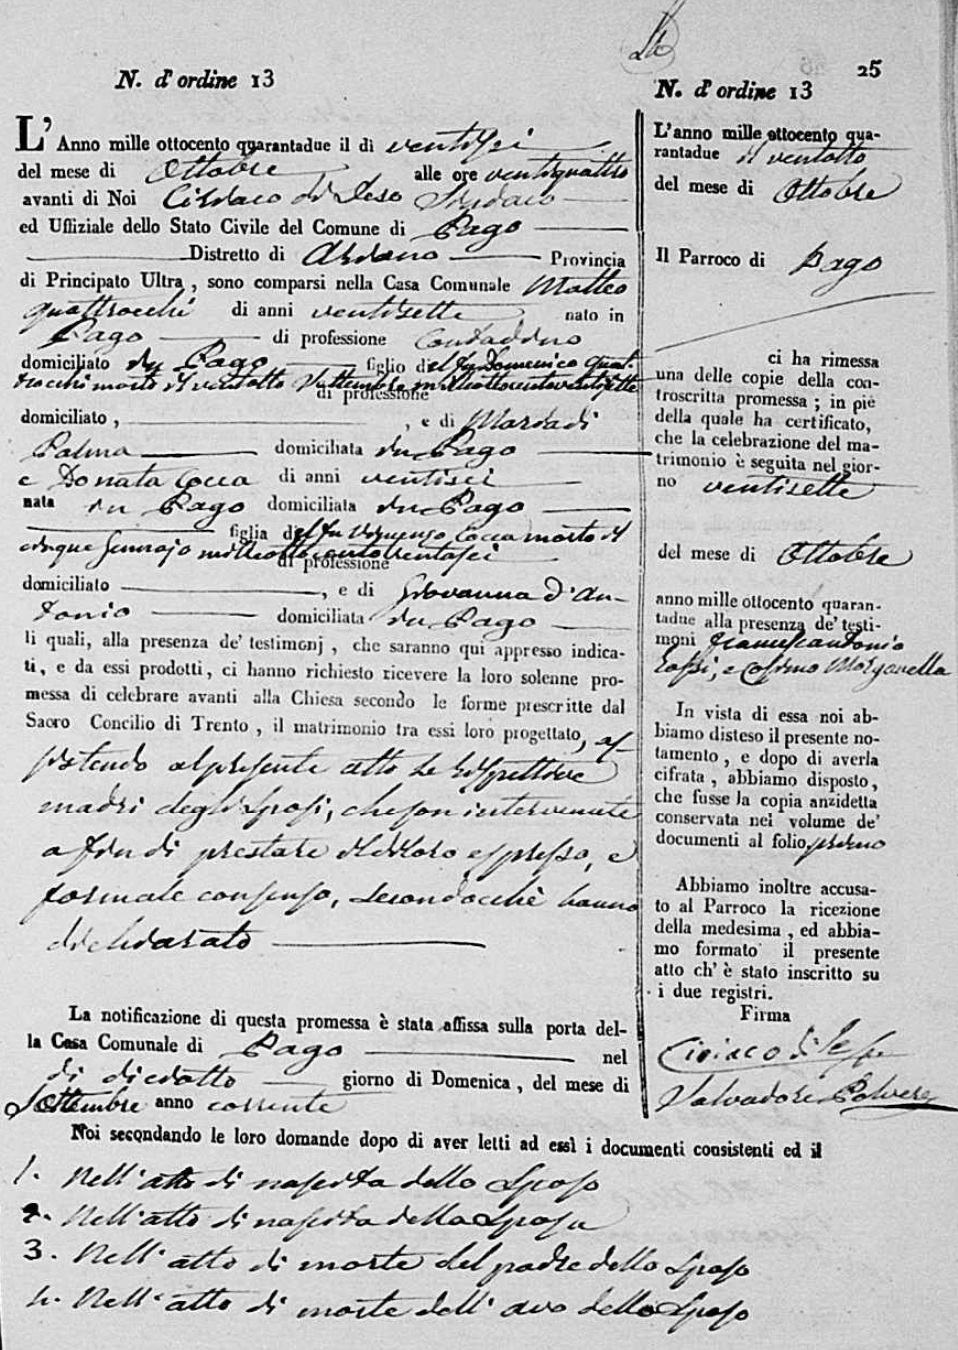 25
N. d'ordine 13
L'Anno mille ottocento quarantadue il dì ventisei
del mese di Ottobre alle ore ventiquattro
avanti di Noi Ciriaco di Leso Sindaco
ed Uffiziale dello Stato Civile del Comune di Pago
Distretto di Ariano Provincia
di Principato Ultra, sono comparsi nella Casa Comunale Matteo
quattrocchi di anni ventisette nato in
Pago di professione Contadino
domiciliato in Pago figlio del fu Domenico Quat-
trocchi morto il ventotto Settembre milleottocentoventisette
di professione
domiciliato , , e di Mariadi
Palma domiciliata in Pago
e Donata Cocca di anni ventisei
nata in Pago domiciliata in Pago
figlia del fu Vincenzo Cocca morto il
cinque Gennajo milleottocentotrentasei
di professione
domiciliato , e di Giovanna d'An-
tonio domiciliata in Pago
li quali, alla presenza de' testimonj, che saranno qui appresso indica-
ti, e da essi prodotti, ci hanno richiesto ricevere la loro solenne pro-
messa di celebrare avanti alla Chiesa secondo le forme prescritte dal
Sacro Concilio di Trento, il matrimonio tra essi loro progettato, as-
sistendo al presente atto le rispettive
madri degli Sposi, che son intervenute
a fin di prestare il di loro espresso, e
formale consenso, secondocchè hanno
dichiarato
La notificazione di questa promessa è stata affissa sulla porta del-
la Casa Comunale di Pago nel
dì diciotto giorno di Domenica, del mese di
Settembre anno corrente
Noi secondando le loro domande dopo di aver letti ad essi i documenti consistenti ed il
1. Nell'atto di nascita dello Sposo
2. Nell'atto di nascita della Sposa
3. Nell'atto di morte del padre dello Sposo
4. Nell'atto di morte dell'avo dello Sposo
N. d'ordine 13
L'anno mille ottocento qua-
rantadue il ventotto
del mese di Ottobre
Il Parroco di Pago
ci ha rimessa
una delle copie della con-
troscritta promessa; in piè
della quale ha certificato,
che la celebrazione del ma-
trimonio è seguita nel gior-
no ventisette
del mese di Ottobre
anno mille ottocento quaran-
tadue alla presenza de' testi-
moni Francescantonio
Rossi, e Cosimo Morganella
In vista di essa noi ab-
biamo disteso il presente no-
tamento, e dopo di averla
cifrata, abbiamo disposto,
che fusse la copia anzidetta
conservata nel volume de'
documenti al folio primo
Abbiamo inoltre accusa-
to al Parroco la ricezione
della medesima, ed abbia-
mo formato il presente
atto ch' è stato inscritto su
i due registri.
Firma
Ciriaco di Leso
Salvadore Polvere